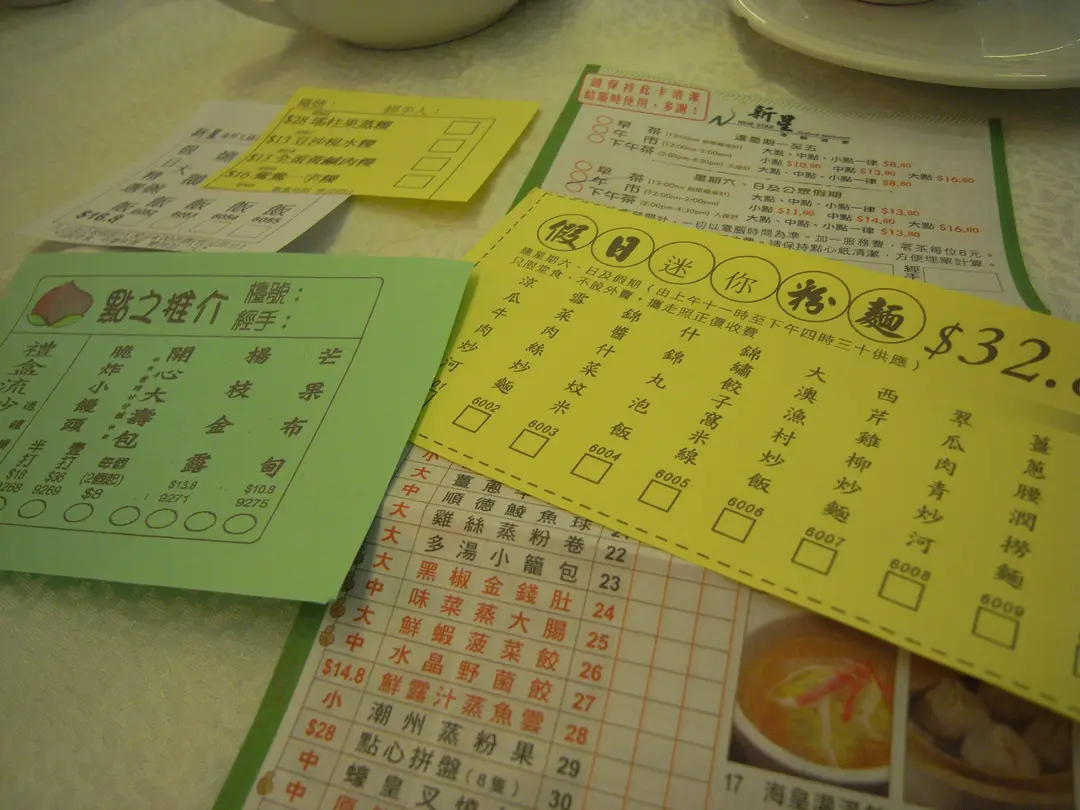 檯號： 經手人：
$28 瑤柱果蒸粿
$17 豆沙梘水粿
$13 全蛋黃鹹肉粿
$16 鴛鴦一字粿
新星
飯 飯 飯 飯
6051 6053 6054 6055
$16.8
請保持此卡清潔
結賬時使用，多謝！
新星
NEW STAR
星期一至五
早茶 大點、中點、小點一律 $8.80
午市 小點 $10.80 中點 $13.80 大點 $16.80
下午茶 大點、中點、小點一律 $8.80
星期六、日及公眾假期
早茶 大點、中點、小點一律 $13.80
午市 小點 $11.80 中點 $14.80 大點 $16.80
下午茶 大點、中點、小點一律 $13.80
一切以電腦時間為準。加一服務費，茗茶每位6元。
請保持點心紙清潔，方便埋單計算。
經手
點之推介
檯號：
經手：
芒果布甸 $10.8 9275
楊枝金露 $13.8 9271
開心大壽包 每個 (2個起) $8
脆炸小饅頭 半打 $18 9268 壹打 $36 9269
禮盒流沙
假日迷你粉麵 $32.
逢星期六、日及假期（由上午十一時至下午四時三十供應）
只限堂食，不設外賣，攜走照正價收費
涼瓜牛肉炒河
雪菜肉絲炒麵 6002
錦醬什菜炆米 6003
什錦丸泡飯 6004
錦繡餃子窩米線 6005
大澳漁村炒飯 6006
西芹雞柳炒麵 6007
翠瓜肉青炒河 6008
薑蔥腰潤撈麵 6009
小
大 薑蔥牛
中 順德鯪魚球 21
大 雞絲蒸粉卷 22
大 多湯小籠包 23
中 黑椒金錢肚 24
大 味菜蒸大腸 25
中 鮮蝦菠菜餃 26
$14.8 水晶野菌餃 27
小 鮮露汁蒸魚雲 28
$28 潮州蒸粉果 29
中 點心拼盤（8隻） 30
中 蠔皇叉燒
17 海皇灌湯